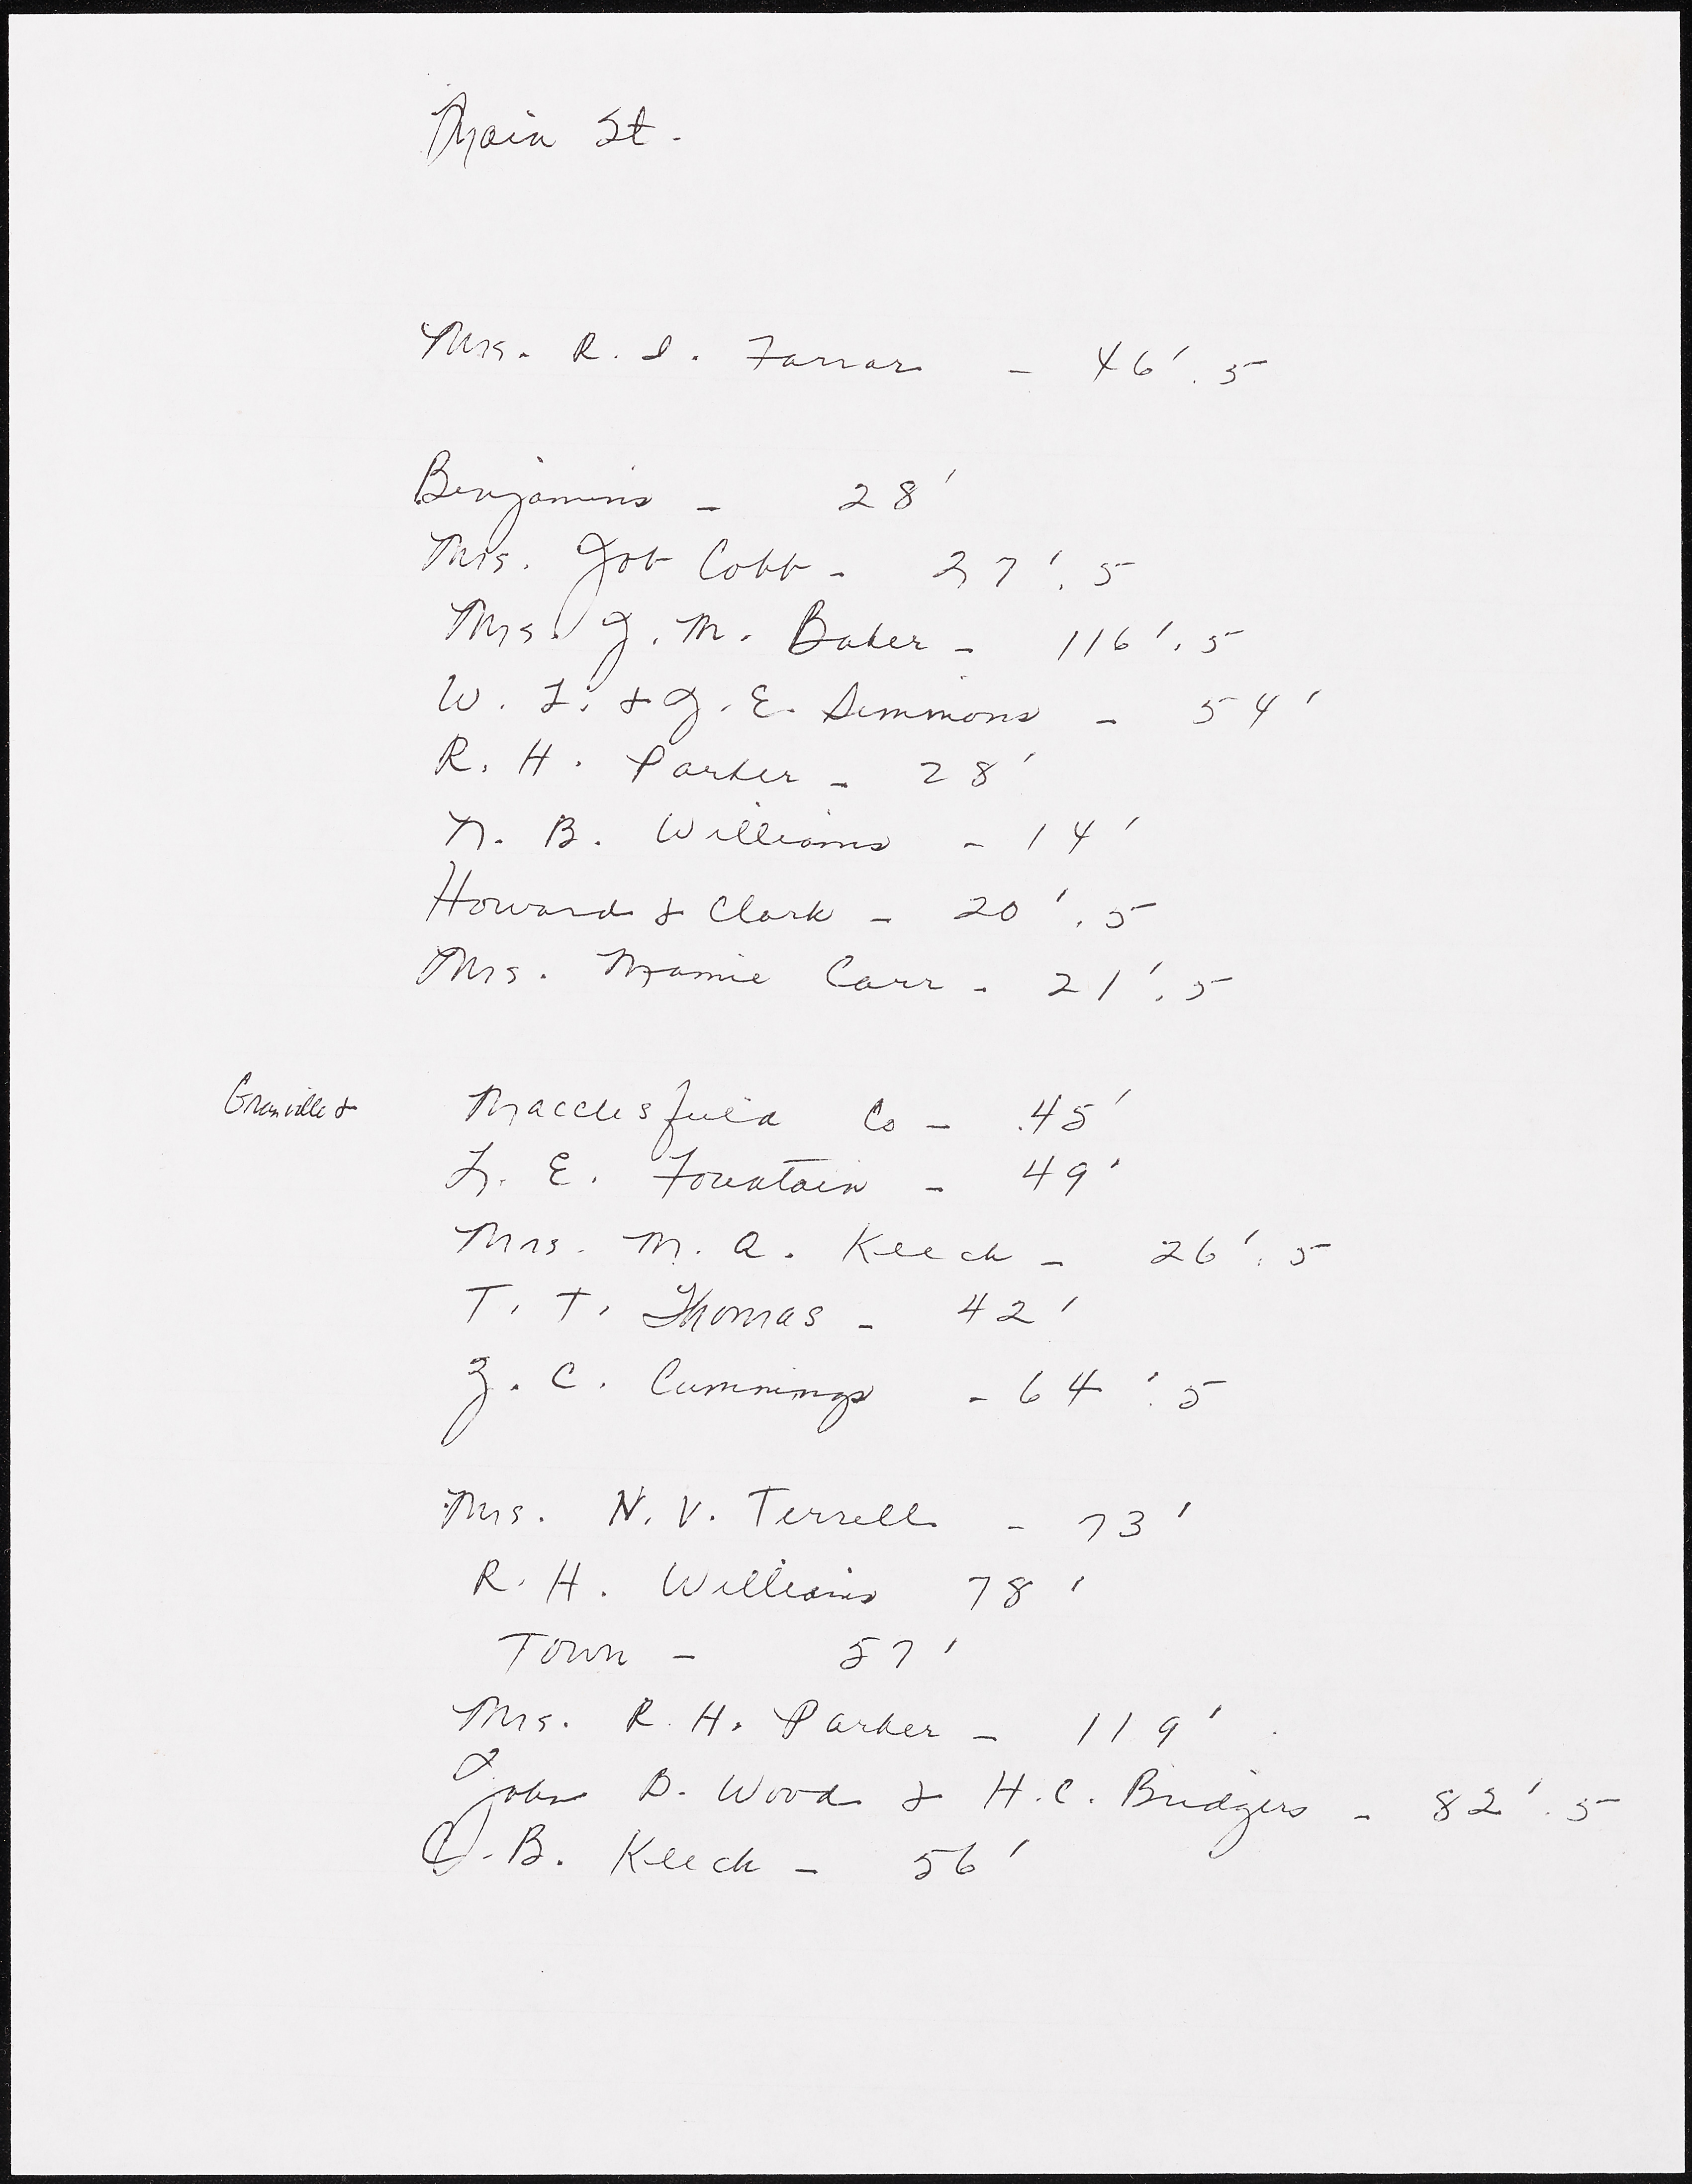 Main St.
Mrs. R. I. Farrar - 46'.5
Benjamins - 28'
Mrs. Job Cobb - 27'.5
Mrs. J. M. Baker - 116'.5
W. L. & J. E. Simmons - 54'
R. H. Parker - 28'
N. B. Williams - 14'
Howard & Clark - 20'.5
Mrs. Mamie Carr - 21'.5
Granville & Macclesfield Co - 45'
L. E. Fountain - 49'
Mrs. M. A. Keech - 26'.5
T. T. Thomas - 42'
Z. C. Cummings - 64'.5
Mrs. N. V. Terrell - 73'
R. H. Williams 78'
Town - 57'
Mrs. R. H. Parker - 119'
John D. Wood & H. C. Bridgers - 82'.5
O. B. Keech - 56'